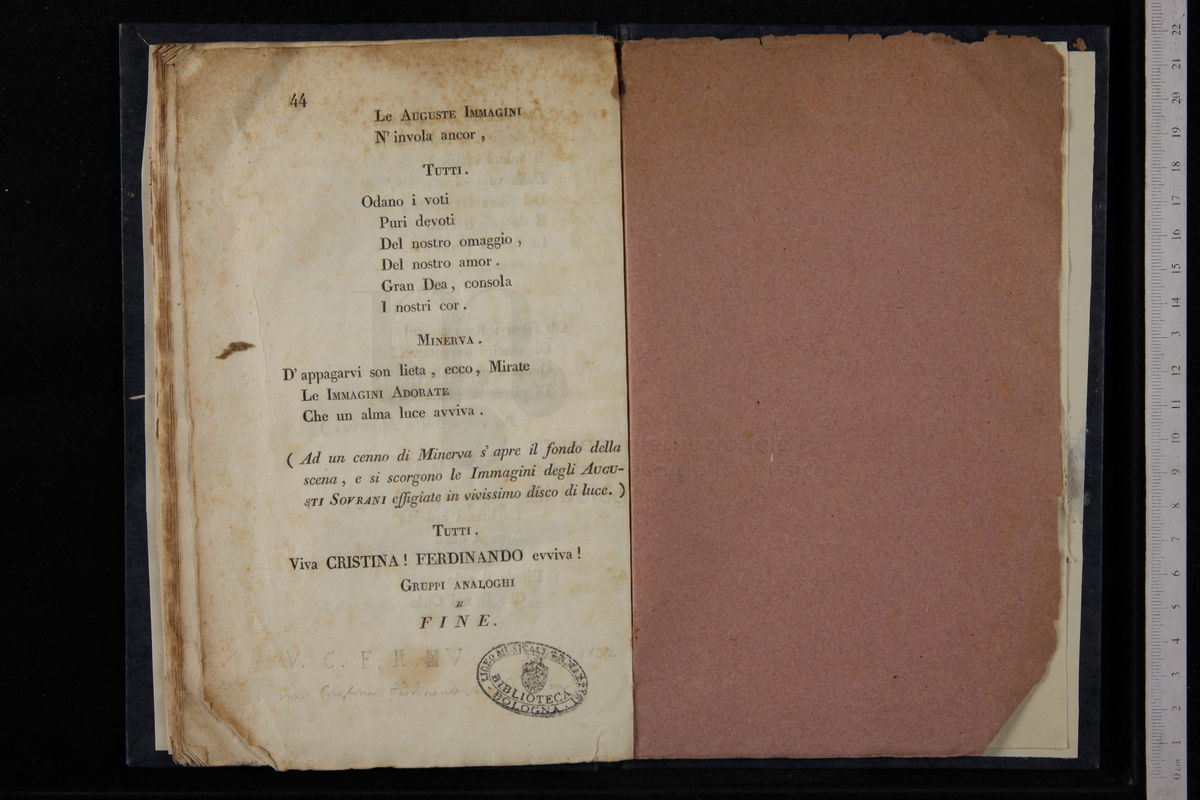 44
Le Auguste Immagini
N' invola ancor ,
Tutti .
Odano i voti
Puri devoti
Del nostro omaggio ,
Del nostro amor .
Gran Dea , consola
I nostri cor .
Minerva .
D' appagarvi son lieta , ecco , Mirate
Le Immagini Adorate
Che un alma luce avviva .
( Ad un cenno di Minerva s' apre il fondo della
scena , e si scorgono le Immagini degli Augu-
sti Sovrani effigiate in vivissimo disco di luce. )
Tutti .
Viva CRISTINA ! FERDINANDO evviva !
Gruppi analoghi
E
FINE.
V. C. F.
LICEO MUSICALE
BIBLIOTECA
BOLOGNA